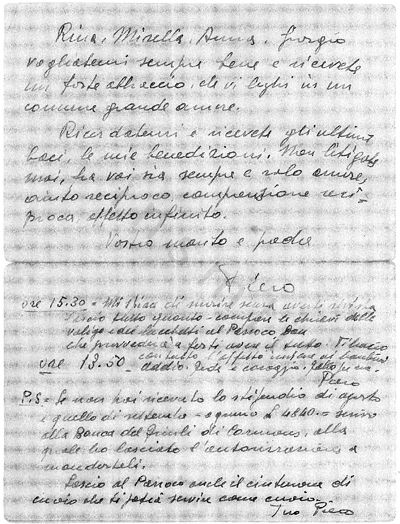 Rina, Mirella, Anna, Giorgio
vogliatemi sempre bene e ricevete
un forte abbraccio, che vi leghi in un
comune grande amore.
Ricordatemi e ricevete gli ultimi
baci, le mie benedizioni. Non litigate
mai, tra voi sia sempre e solo amore,
aiuto reciproco comprensione reci-
proca affetto infinito.
Vostro marito e padre
Piero
ore 15.30 = di morire senza averti
tutto quanto - le chiavi delle
valigie e dei al Parroco Don
che a farti avere il tutto. Ti bacio
ore 13.50 con tutto l'affetto i bambini
addio. Fede e coraggio.
Piero
P.S = Se non hai ricevuto lo stipendio di agosto
e quello di settembre = ognuno £ 4840 = scrivi
alla Banca del Friuli di Cormons, alla
quale ho lasciato l'autorizzazione a
mandarteli.
Lascio al Parroco anche il cinturone di
cuoio che ti potrà servire come cuoio.
Tuo Piero